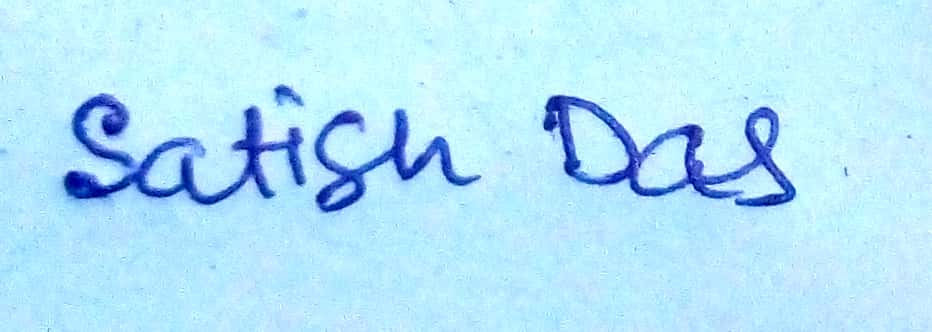 Satish Das